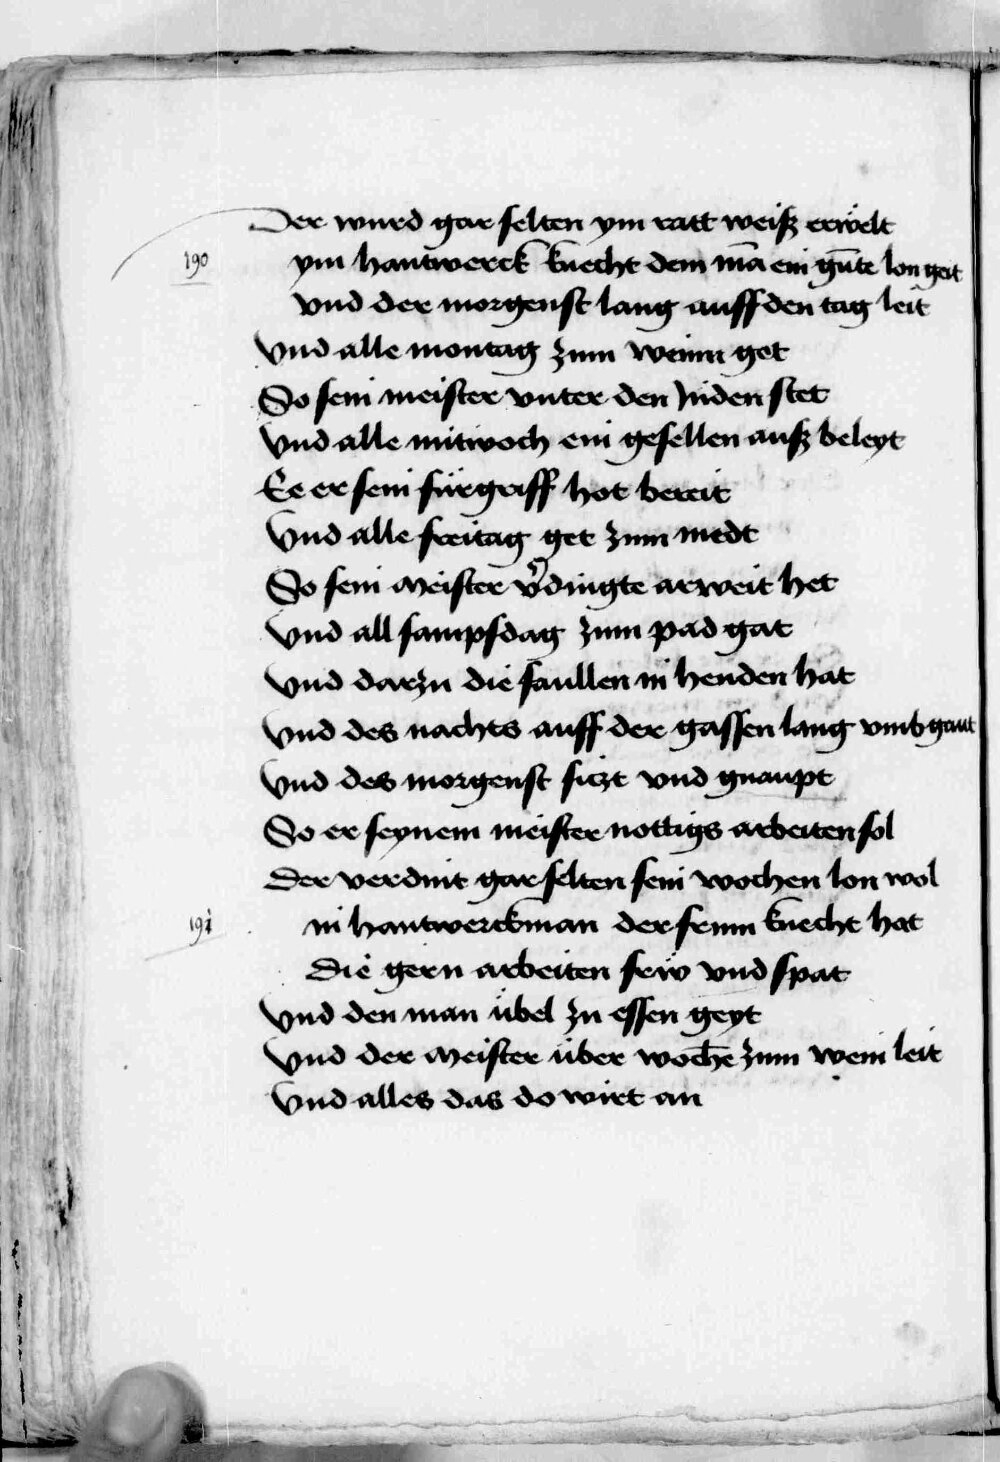 Der wurd gar selten ym ratt weiß erwëlt
190
ym hantwerck knecht dem mā ein gūte lon geit
vnd der morgenst lang auff den tag leit
Vnd alle montag zum weinn get
So sein meister vnter den Juden stet
Vnd alle mitwoch ein gesellen auß beleyt
Ee er sein fürgriff hot bereit
Vnd alle freitag get zum medt
So sein meister v̾dingte arweit het
Vnd all sampsdag zum pad gat
Vnd darzu die faullen in henden hat
Vnd des nachts auff der gassen lang vmb gaut
Vnd des morgenst sitzt vnd gnaupt
So er seynem meister nottigs arbeiten sol
Der verdint gar selten sein wochen lon wol
191
in hantwerckman der frum knecht hat
Die gern arbeiten frw vnd spat
Vnd den man übel zu essen geyt
Vnd der meister über woch̄e zum wein leit
Vnd alles das do wirt an